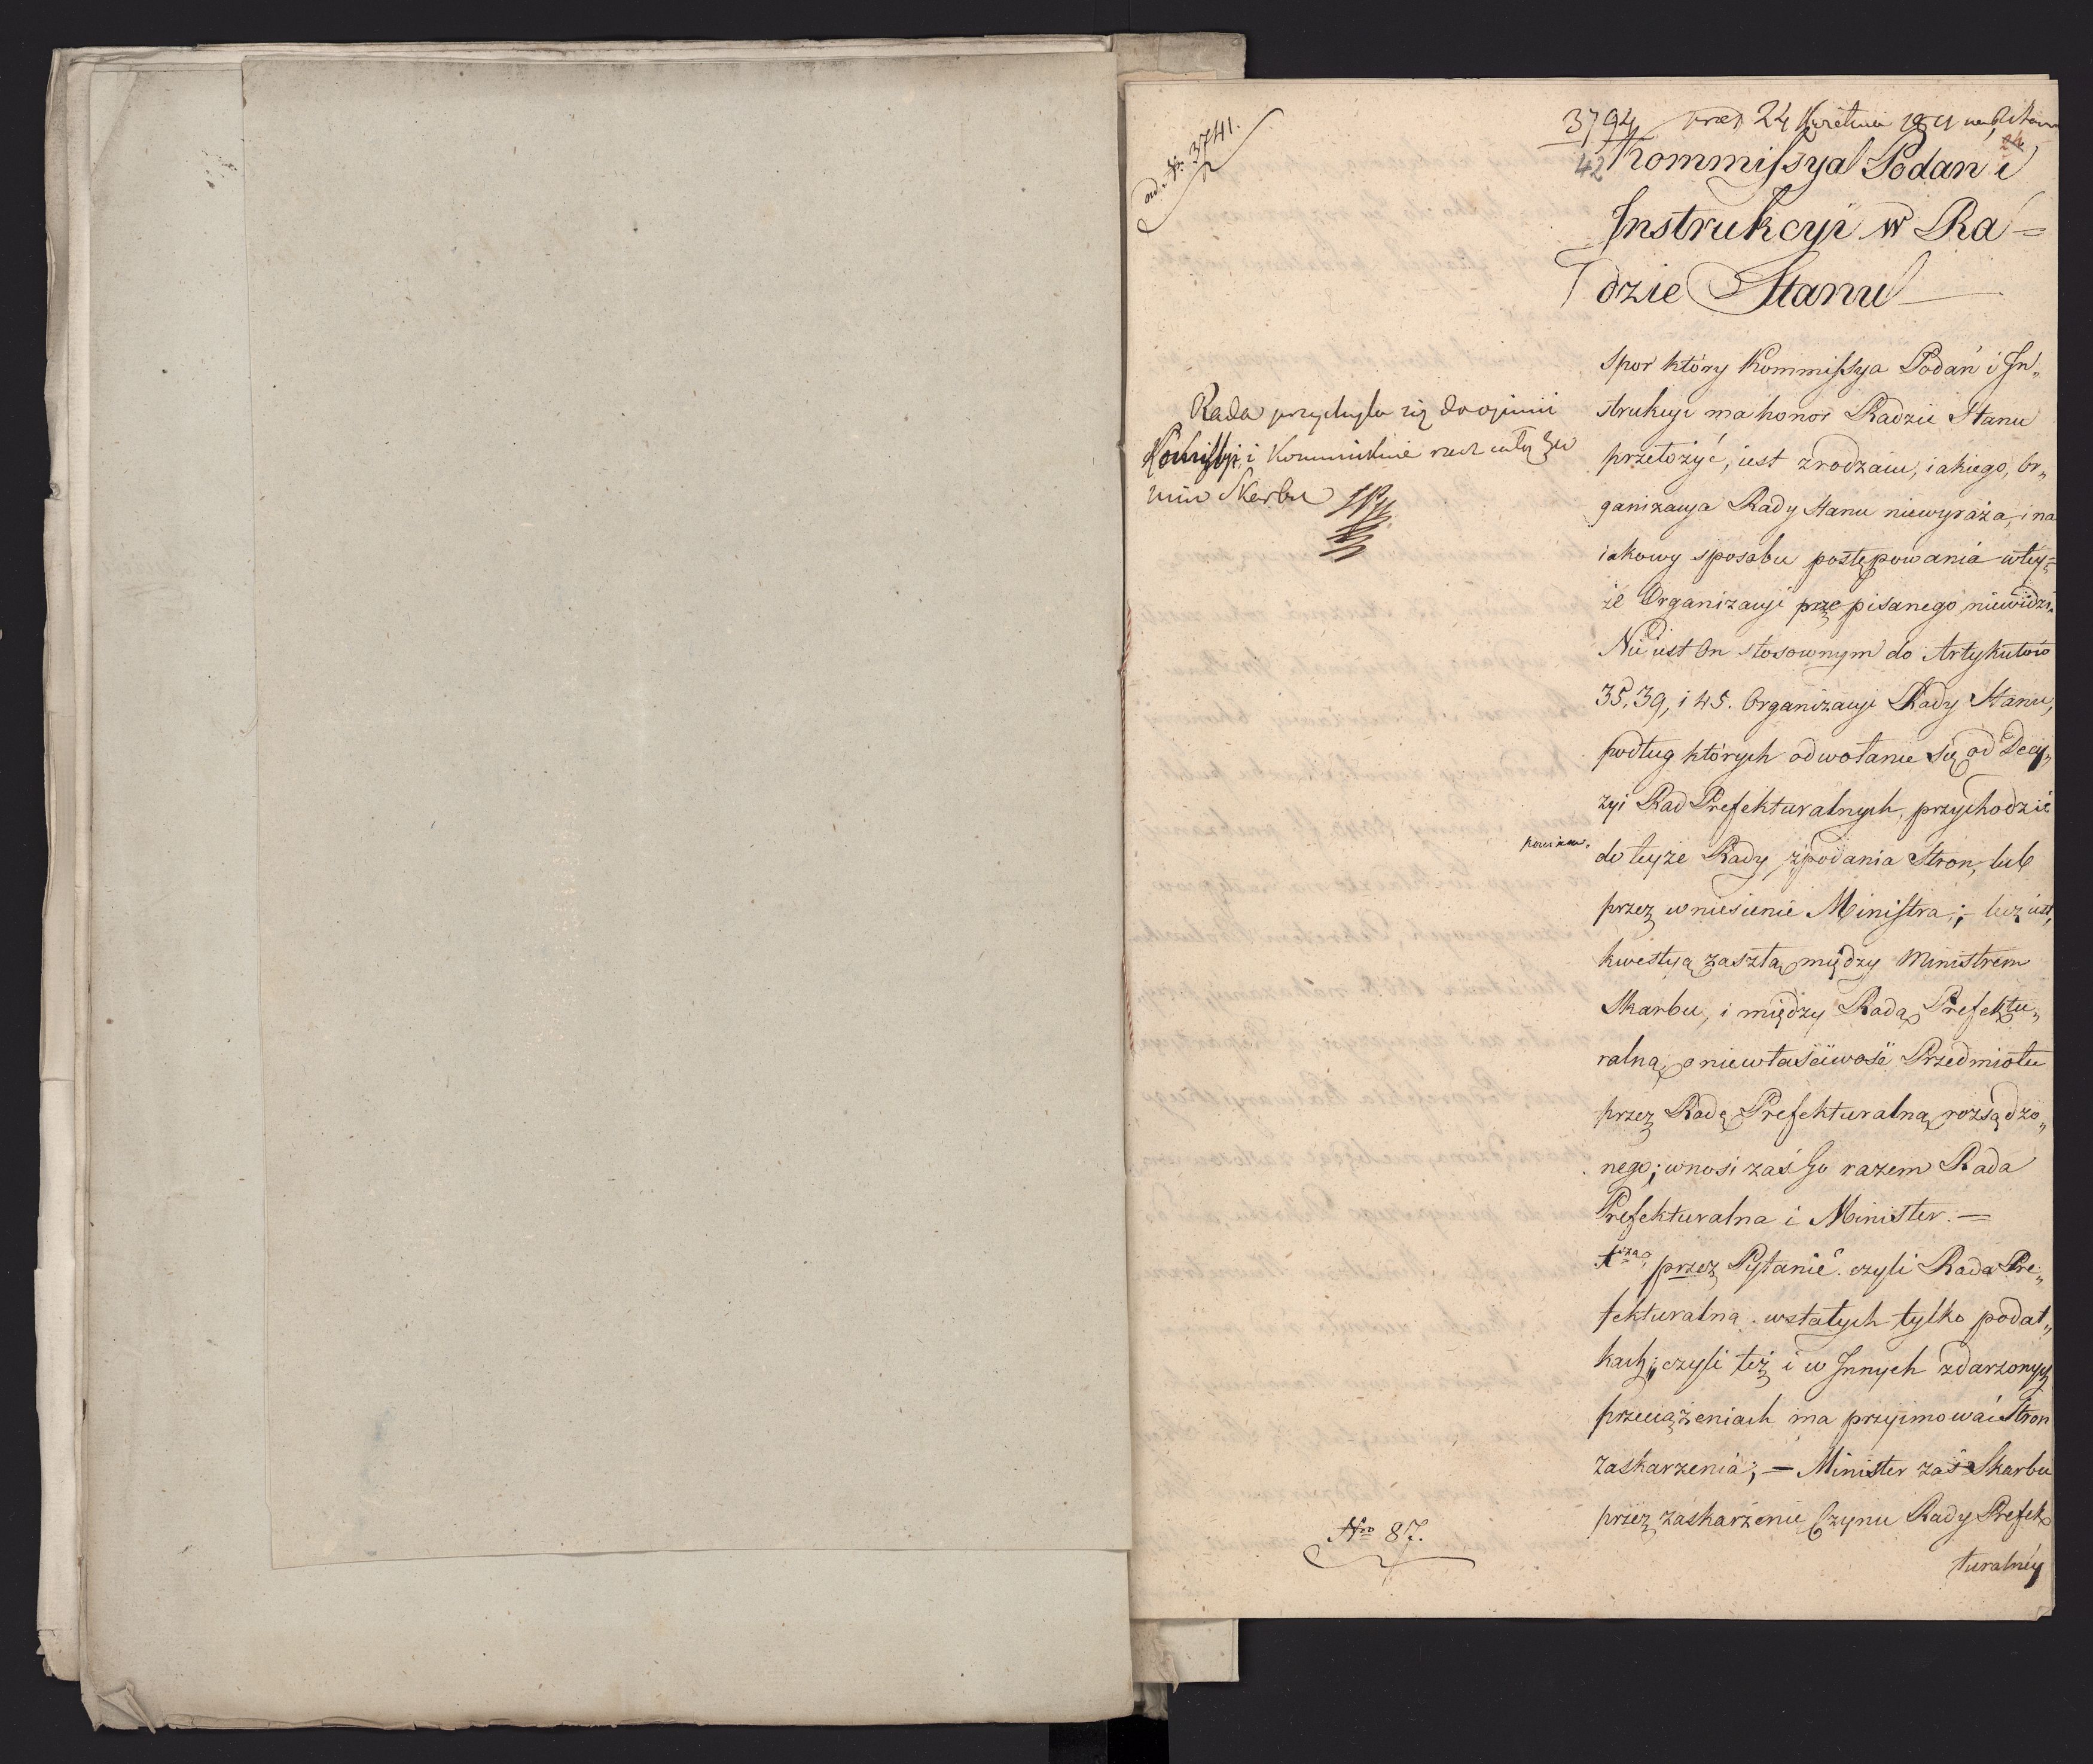 ad. Nr. 3741.
3794 24 Kwietnia
42
Kommissya Podań i
Instrukcyi w Ra=
dzie Stanu
Rada przychyla się do opinii
Kommissyi, i
Skarbu
Spor który Kommissya Podań i In„
strukcyi ma honor Radzie Stanu
przełożyć, iest zrodzaiu, iakiego, Or„
ganizacya Rady Stanu niewyraża, i na
iakowy sposobu postępowania wtey=
że Organizacyi przepisanego niewidzi.
Nie iest On stosownym do Artykułów
35, 39, i 45. Organizacyi Rady Stanu,
podług których odwołanie się od Decy„
zyi Rad Prefekturalnych, przychodzić
powinno.
do teyże Rady, zpodania Stron, lub
przez wniesienie Ministra; – lecz iest,
kwestyą zaszłą między Ministrem
Skarbu, i między Radą Prefektu„
ralną, o niewłaściwość Przedmiotu
przez Radę Prefekturalną rozsądzo„
nego; wnosi zaś Go razem Rada
Prefekturalna i Minister. =
przez Pytanie. czyli Rada Pre„
fekturalna. wstałych tylko podat„
kach; czyli też i w Innych zdarzonych
przeciążeniach ma przyimować Stron
zaskarzenia; = Minister zaś Skarbu
przez zaskarżenie Czynu Rady Prefek
turalnéy
Nro 87.